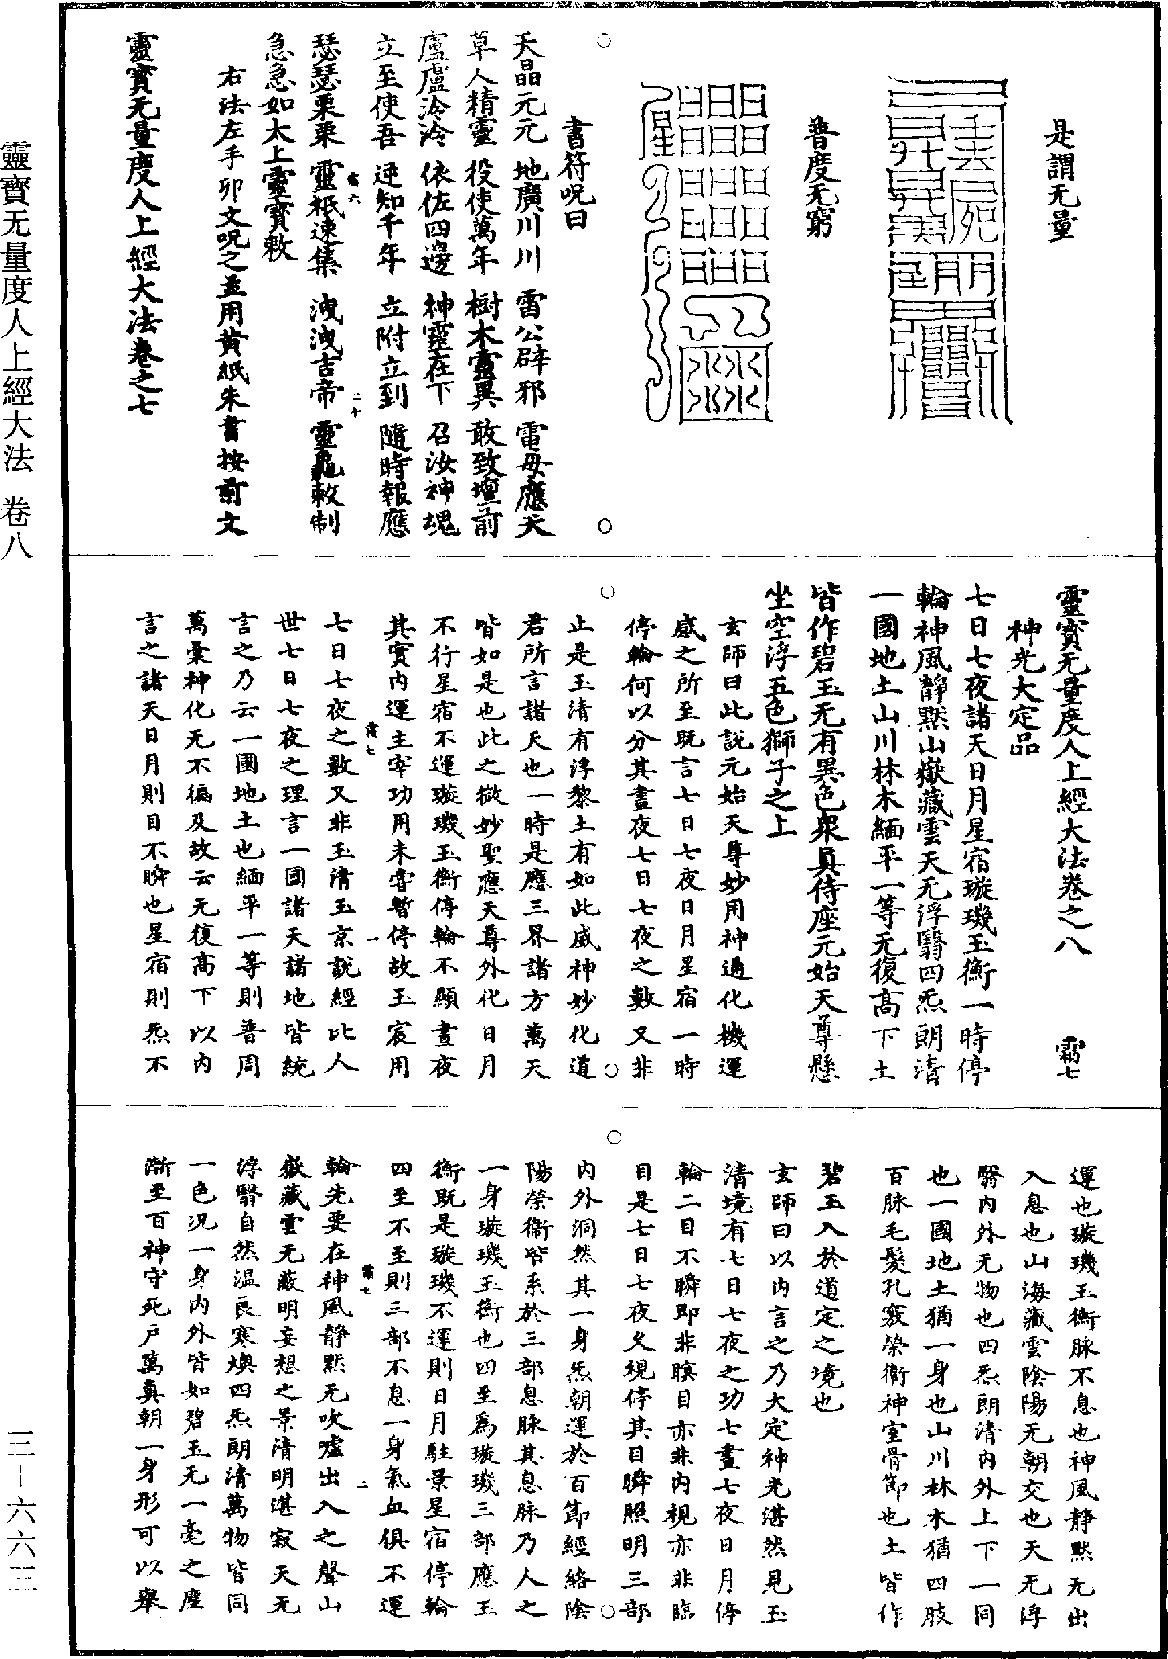 是謂无量
普度无窮
書符呪曰
天晶元元 地廣川川 雷公辟邪 電母應天
草人精靈 役使萬年 樹木靈異 敢致壇前
盧盧泠泠 依佐四邊 神靈在下 召汝神魂
立至使吾 逆知千年 立附立到 隨時報應
瑟瑟栗栗 靈祇速集 洩洩吉帝 靈龜敕制
急急如太上靈寳敕
右法左手卯文呪之並用黄紙朱書按前文
靈寳无量度人上經大法卷之七
靈寳无量度人上經大法卷之八
神光大定品
七日七夜諸天日月星宿璇璣玉衡一時停
輪神風靜黙山嶽藏雲天无浮翳四炁朗清
一國地土山川林木緬平一等无復髙下土
皆作碧玉无有異色衆真侍座元始天尊懸
坐空浮五色獅子之上
玄師曰此說元始天尊妙用神通化機運
感之所至既言七日七夜日月星宿一時
停輪何以分其晝夜七日七夜之數又非
止是玉清有浮黎土有如此威神妙化道
君所言諸天也一時是應三界諸方萬天
皆如是也此之微妙聖應天尊外化日月
不行星宿不運璇璣玉衡停輪不顯晝夜
其實内運主宰功用未嘗暫停故玉宸用
七日七夜之數又非玉清玉京說經比人
世七日七夜之理言一國諸天諸地皆統
言之乃云一國地土也緬平一等則普周
萬彙神化无不徧及故云无復髙下以内
言之諸天日月則目不瞬也星宿則炁不
運也璇璣玉衡脉不息也神風靜黙无出
入息也山海藏雲陰陽无朝交也天无浮
翳内外无物也四炁朗清内外上下一同
也一國地土猶一身也山川林木猶四肢
百脉毛髮孔竅榮衞神室骨節也土皆作
碧玉入於道定之境也
玄師曰以内言之乃大定神光湛然見玉
清境有七日七夜之功七晝七夜日月停
輪二目不瞬即非瞑目亦非内視亦非臨
目是七日七夜久視停其目瞬照明三部
内外洞然其一身炁朝運於百節經絡陰
陽榮衞皆系於三部息脉其息脉乃人之
一身璇璣玉衡也四至爲璇璣三部應玉
衡既是璇璣不運則日月駐景星宿停輪
四至不至則三部不息一身氣血俱不運
輪先要在神風靜黙无吹嘘出入之聲山
嶽藏雲无蔽明妄想之景清明湛寂天无
浮翳自然温良寒燠四炁朗清萬物皆同
一色况一身内外皆如碧玉无一毫之塵
漸至百神守死户萬真朝一身形可以舉
靈寳无量度人上經大法 卷八
三－六六三